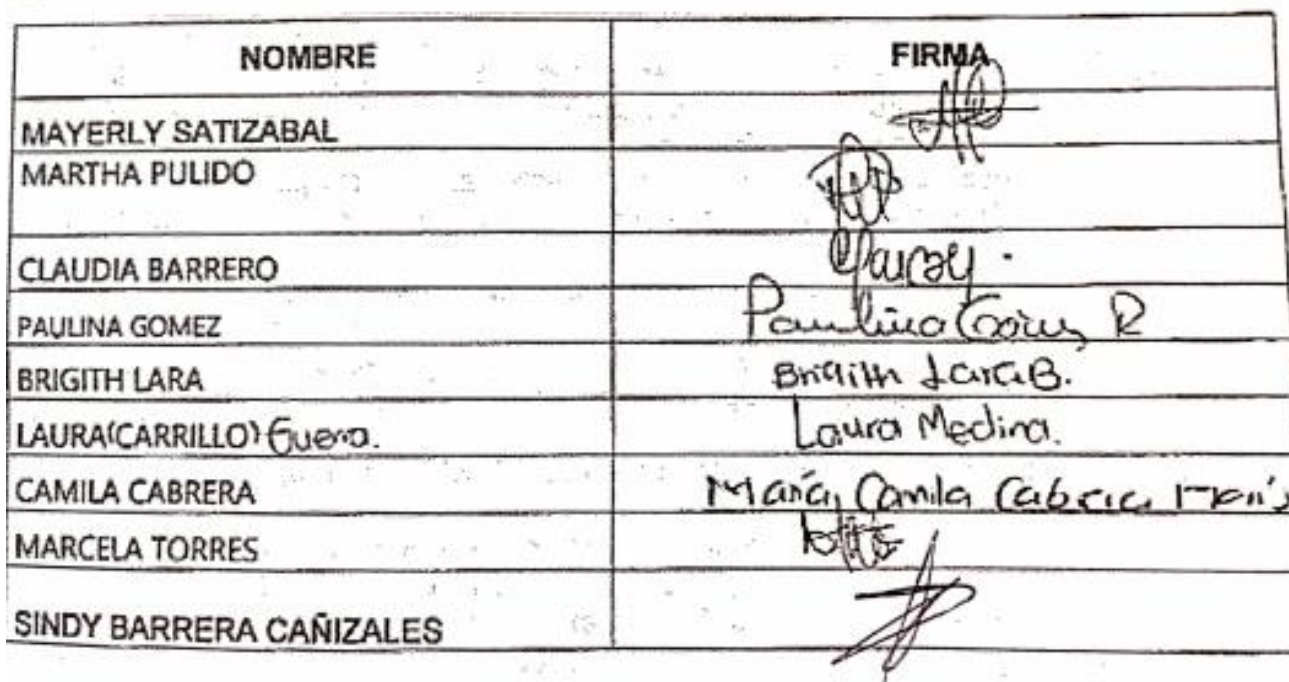 NOMBRE FIRMA
MAYERLY SATIZABAL
MARTHA PULIDO
CLAUDIA BARRERO
PAULINA GOMEZ Paulina R
BRIGITH LARA Brigith Lara B.
LAURA(CARRILLO) Laura Medina.
CAMILA CABRERA María Camila Cabrera
MARCELA TORRES
SINDY BARRERA CAÑIZALES